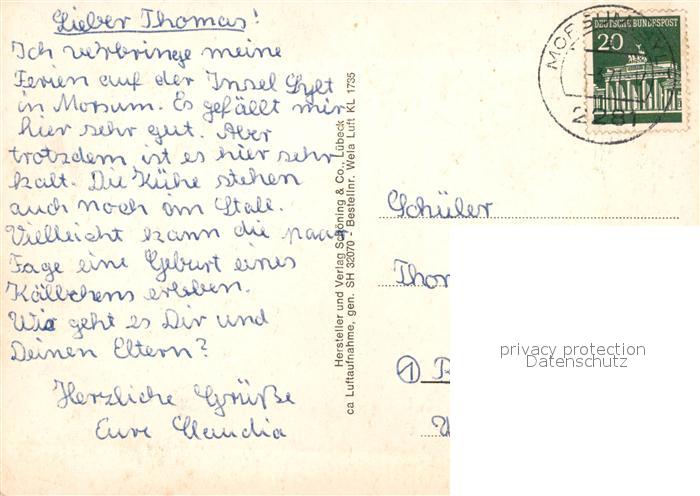 Lieber Thomas!
Ich verbringe meine
Ferien auf der Insel Sylt
in Morsum. Es gefällt mir
hier sehr gut. Aber
trotzdem ist es hier sehr
kalt. Die Kühe stehen
auch noch im Stall.
Vielleicht kann die paar
Tage eine Geburt eines
Kälbchens erleben.
Wie geht es Dir und
Deinen Eltern?
Herzliche Grüße
Eure Claudia
Hersteller und Verlag Schöning & Co., Lübeck
ca Luftaufnahme, gen. SH 32070 - Bestellnr. Wela Luft KL 1735
DEUTSCHE BUNDESPOST
20
2281
Schüler
Thor
1
privacy protection
Datenschutz